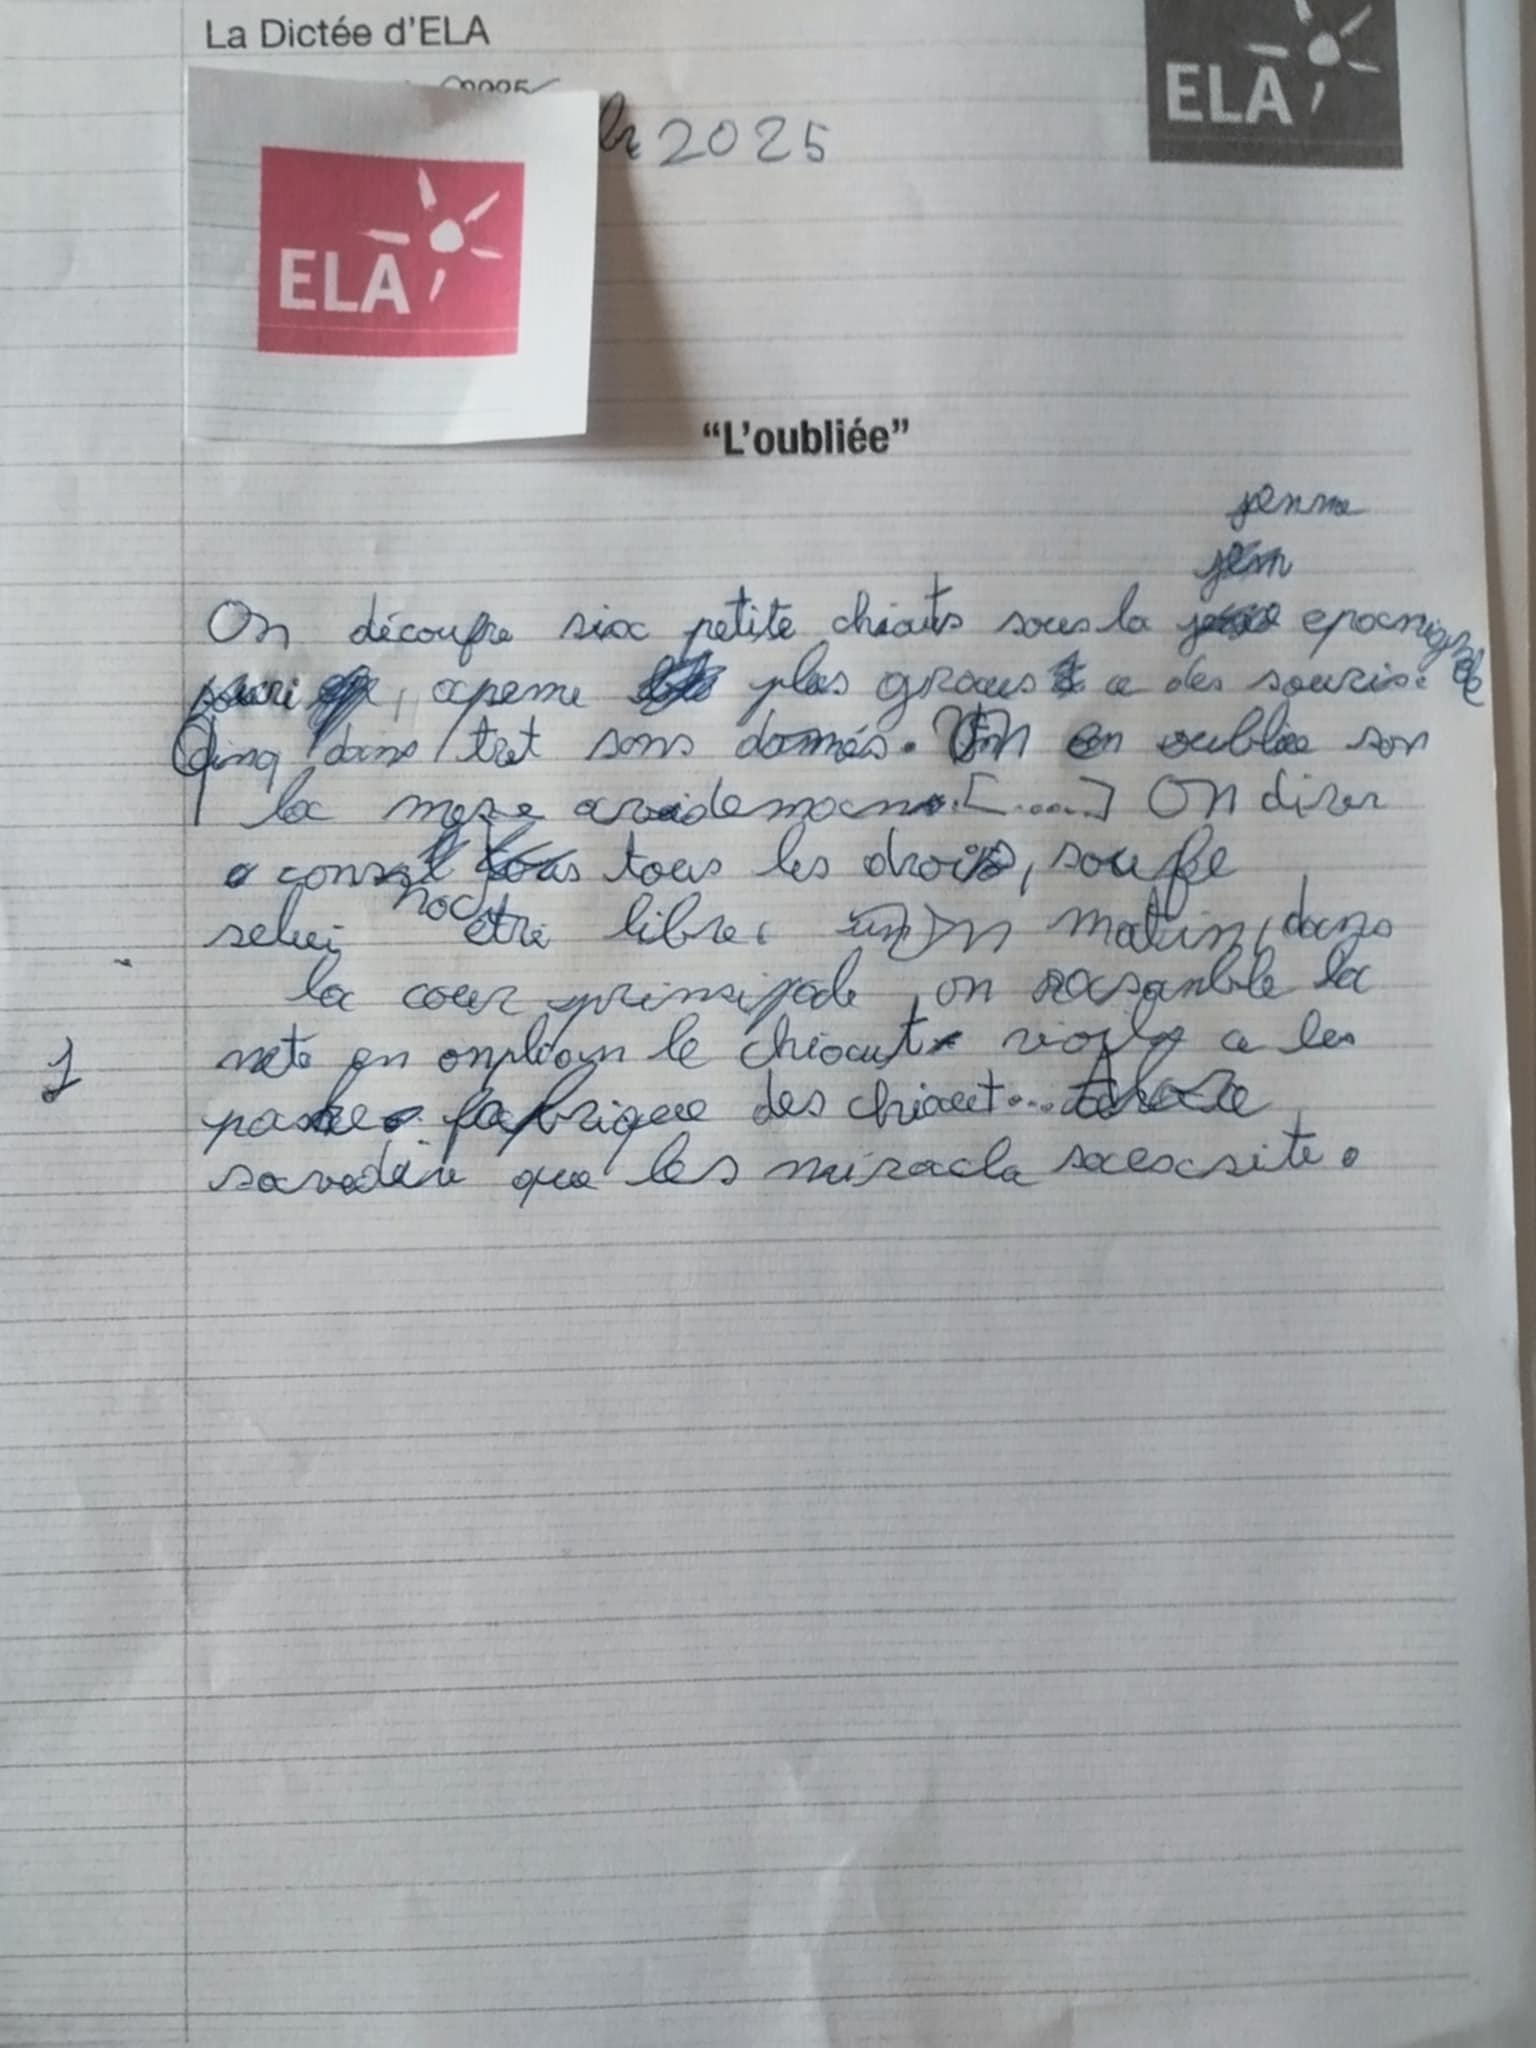 La Dictée d'ELA
ELA
2025
ELA
"L'oubliée"
jenne
On découfre six petite chiots sous la epocnignole
, apeme plus graus a des souris.
Cinq dans tret sons donnés. On en oublie son
la mere avidemans. [.....] On direr
a consel tous les drois, soufe
selui noc etre libre. Un matin, dans
la cour prinsipade, on rasanble la
mete en onpleoin le chiout viols a les
fabrique des chiout...
savedire que les miracla saexsite.
1